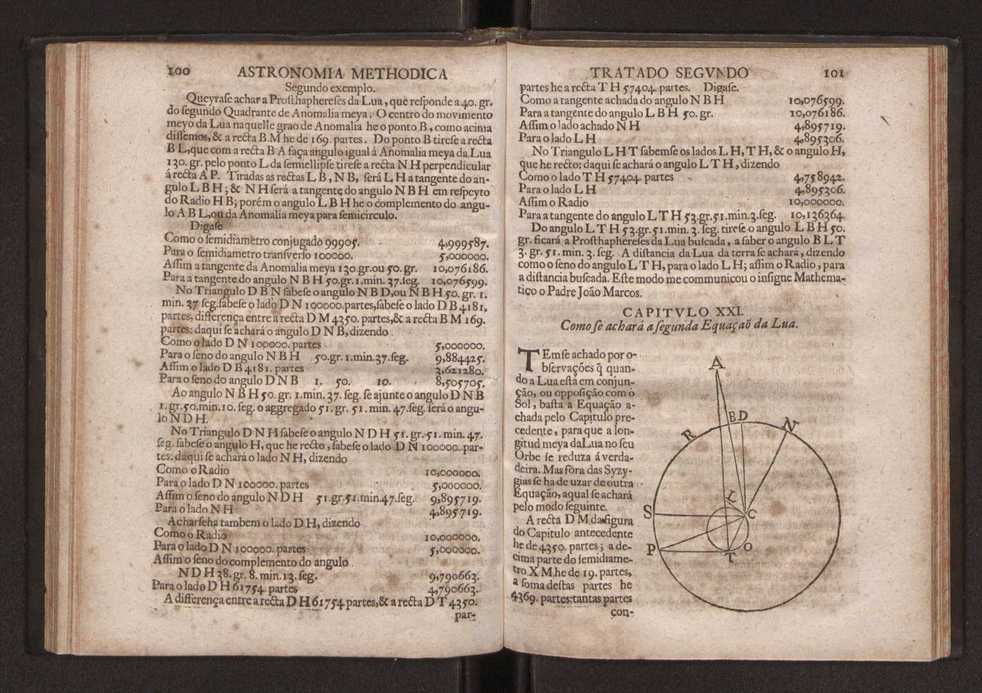 100 ASTRONOMIA METHODICA
Segundo exemplo.
Queyraſe achar a Proſthaphereſes da Lua, que reſponde a 40. gr.
do ſegundo Quadrante de Anomalia meya. O centro do movimento
meyo da Lua naquelle grao de Anomalia he o ponto B, como acima
diſſemos, & a recta B M he de 169. partes. Do ponto B tireſe a recta
B L, que com a recta B A faça angulo igual á Anomalia meya da Lua
130. gr. pelo ponto L da ſemellipſe tireſe a recta N H perpendicular
á recta A P. Tiradas as rectas L B, N B, ſerá L H a tangente do an-
gulo L B H; & N H ſerá a tangente do angulo N B H em reſpeyto
do Radio H B; porém o angulo L B H he o complemento do angu-
lo A B L, ou da Anomalia meya para ſemicirculo.
Digaſe
Como o ſemidiametro conjugado 99905. 4,999587.
Para o ſemidiametro tranſverſo 100000. 5,000000.
Aſſim a tangente da Anomalia meya 130. gr. ou 50. gr. 10,076186.
Para a tangente do angulo N B H 50. gr. 1. min. 37. ſeg. 10,076599.
No Triangulo D B N ſabeſe o angulo N B D, ou N B H 50. gr. 1.
min. 37. ſeg. ſabeſe o lado D N 100000. partes, ſabeſe o lado D B 4181,
partes, differença entre a recta D M 4350. partes, & a recta B M 169.
partes: daqui ſe achará o angulo D N B, dizendo
Como o lado D N 100000. partes 5,000000.
Para o ſeno do angulo N B H 50. gr. 1. min. 37. ſeg. 9,884425.
Aſſim o lado D B 4181. partes 3,621280.
Para o ſeno do angulo D N B 1. 50. 10. 8,505705.
Ao angulo N B H 50. gr. 1. min. 37. ſeg. ſe ajunte o angulo D N B
1. gr. 50. min. 10. ſeg. o aggregado 51. gr. 51. min. 47. ſeg. ſerá o angu-
lo N D H.
No Triangulo D N H ſabeſe o angulo N D H 51. gr. 51. min. 47.
ſeg. ſabeſe o angulo H, que he recto, ſabeſe o lado D N 100000. par-
tes: daqui ſe achará o lado N H, dizendo
Como o Radio 10,000000.
Para o lado D N 100000. partes 5,000000.
Aſſim o ſeno do angulo N D H 51. gr. 51. min. 47. ſeg. 9,895719.
Para o lado N H 4,895719.
Acharſeha tambem o lado D H, dizendo
Como o Radio 10,000000.
Para o lado D N 100000. partes 5,000000.
Aſſim o ſeno do complemento do angulo
N D H 38. gr. 8. min. 13. ſeg. 9,790663.
Para o lado D H 61754. partes 4,790663.
A differença entre a recta D H 61754 partes, & a recta D T 4350.
par-
TRATADO SEGVNDO 101
partes he a recta T H 57404. partes. Digaſe.
Como a tangente achada do angulo N B H 10,076599.
Para a tangente do angulo L B H 50. gr. 10,076186.
Aſſim o lado achado N H 4,895719.
Para o lado L H 4,895306.
No Triangulo L H T ſabemſe os lados L H, T H, & o angulo H,
que he recto: daqui ſe achará o angulo L T H, dizendo
Como o lado T H 57404. partes 4,758942.
Para o lado L H 4,895306.
Aſſim o Radio 10,000000.
Para a tangente do angulo L T H 53. gr. 51. min. 3. ſeg. 10,136364.
Do angulo L T H 53. gr. 51. min. 3. ſeg. tireſe o angulo L B H 50.
gr. ficará a Proſthaphereſes da Lua buſcada, a ſaber o angulo B L T
3. gr. 51. min. 3. ſeg. A diſtancia da Lua da terra ſe achará, dizendo
como o ſeno do angulo L T H, para o lado L H; aſſim o Radio, para
a diſtancia buſcada. Eſte modo me communicou o inſigne Mathema-
tico o Padre João Marcos.
CAPITVLO XXI.
Como ſe achará a ſegunda Equaçaõ da Lua.
TEmſe achado por o-
bſervações q̃ quan-
do a Lua eſtá em conjun-
ção, ou oppoſição com o
Sol, baſta a Equação a-
chada pelo Capitulo pre-
cedente, para que a lon-
gitud meya da Lua no ſeu
Orbe ſe reduza á verda-
deira. Mas fóra das Syzy-
gias ſe ha de uzar de outra
Equação, a qual ſe achará
pelo modo ſeguinte.
A recta D M da figura
do Capitulo antecedente
he de 4350. partes; a de-
cima parte do ſemidiame-
tro X M he de 19. partes,
a ſoma deſtas partes he
4369. partes: tantas partes
con-
A
B D
R
N
L
S
C
P
O
T